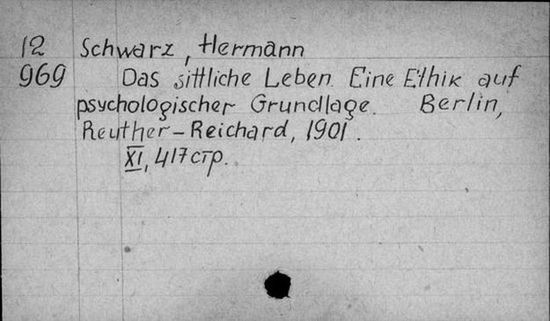 12 Schwarz, Hermann
969 Das sittliche Leben. Eine Ethik auf
psychologischer Grundlage. Berlin,
Reuther-Reichard, 1901.
XI, 417 стр.